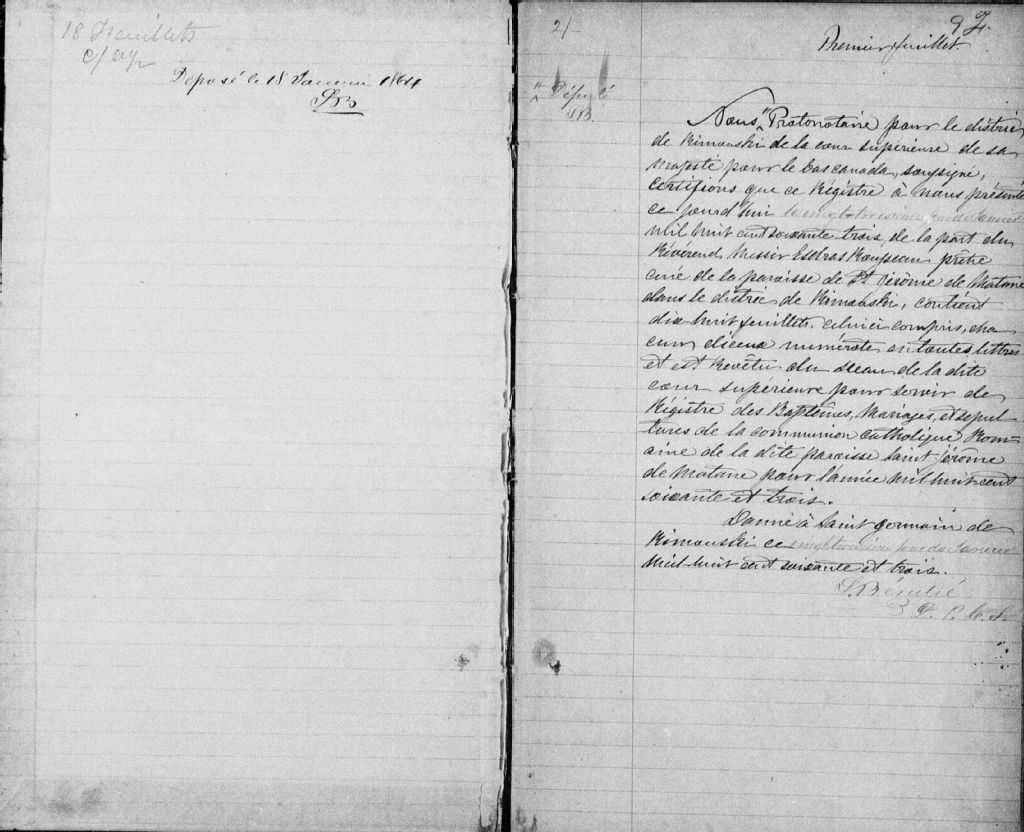 18 Feuillets
Deposé le 18 Janvier 1864
SB
2/-
" Député
SB.
9 F.
Premier feuillet
Nous " Protonotaire pour le district
de Rimouski de la cour supérieure de sa
Majesté pour le bas canada, soussigné,
certifions que ce Régistre à nous présenté
ce jourd'hui le vingt troisième jour de Janvier
mil huit cent soixante trois de la part du
Révérend Messir Esdras Rousseau prêtre
curé de la paroisse de St Jérôme de Matane
dans le district de Rimouski, contient
dix huit feuillets, celui ci compris, cha
cun d'iceux numéroté en toutes lettres
et est Revêtu du sceau de la dite
cour supérieure pour servir de
Régistre des Baptêmes, Mariages, et sepul-
tures de la communion catholique Rom-
aine de la dite paroisse saint jérôme
de Matane pour l'année mil huit cent
soixante et trois.
Donné à Saint germain de
Rimouski ce vingt troisième jour de Janvier
Mil huit cent soixante et trois.
D. P. C. S.